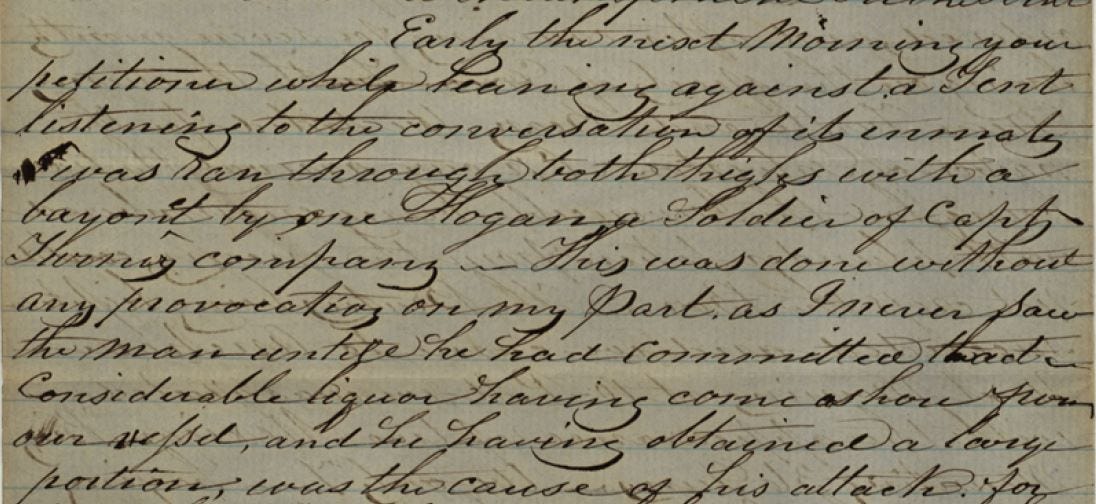 Early the next Morning your
petitioner while leaning against a Tent
listening to the conversation of its inmates
was ran through both thighs with a
bayonet by one Hogan a Soldier of Capt
company — This was done without
any provocation on my Part. as I never saw
the man untill he had committed the act
Considerable liquor having come ashore from
our vessel, and he having obtained a large
portion, was the cause of his attack for